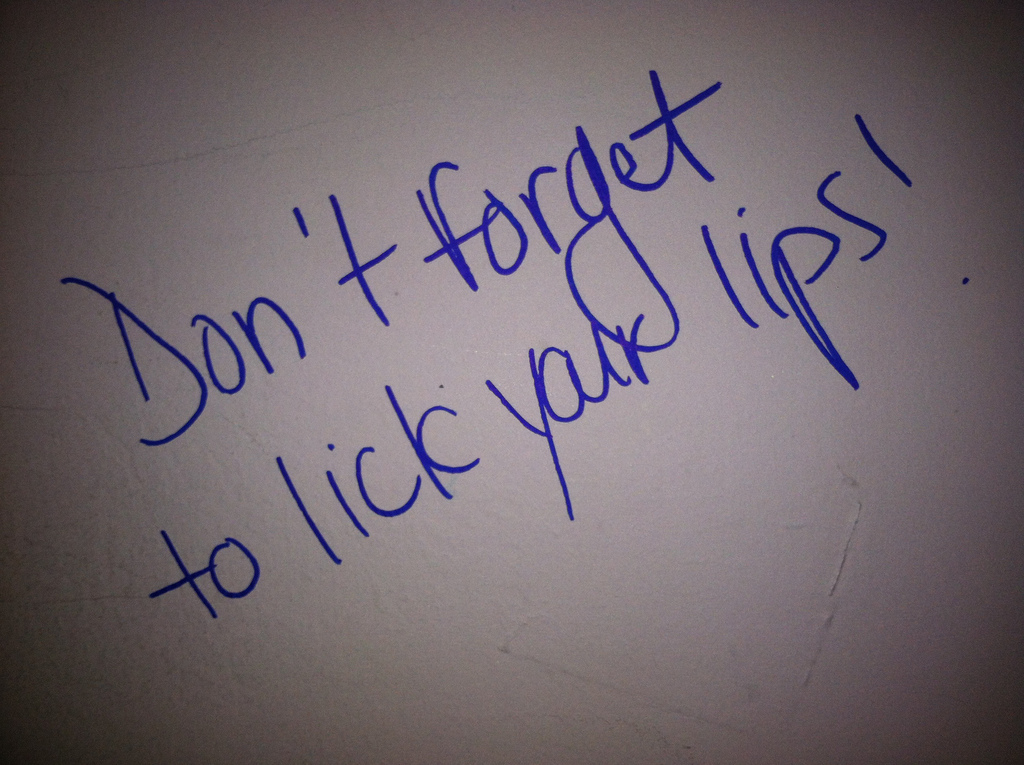 Don't forget
to lick your lips!